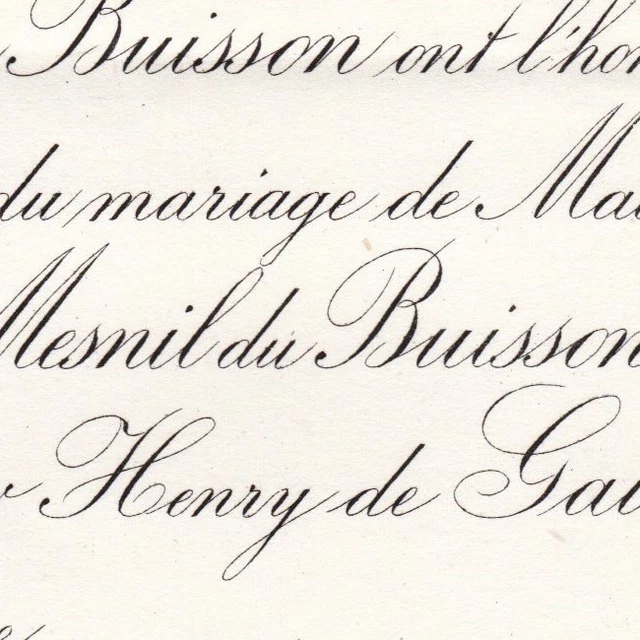 Buisson ont l'hon
du mariage de Ma
Mesnil du Buisson
Henry de Gau